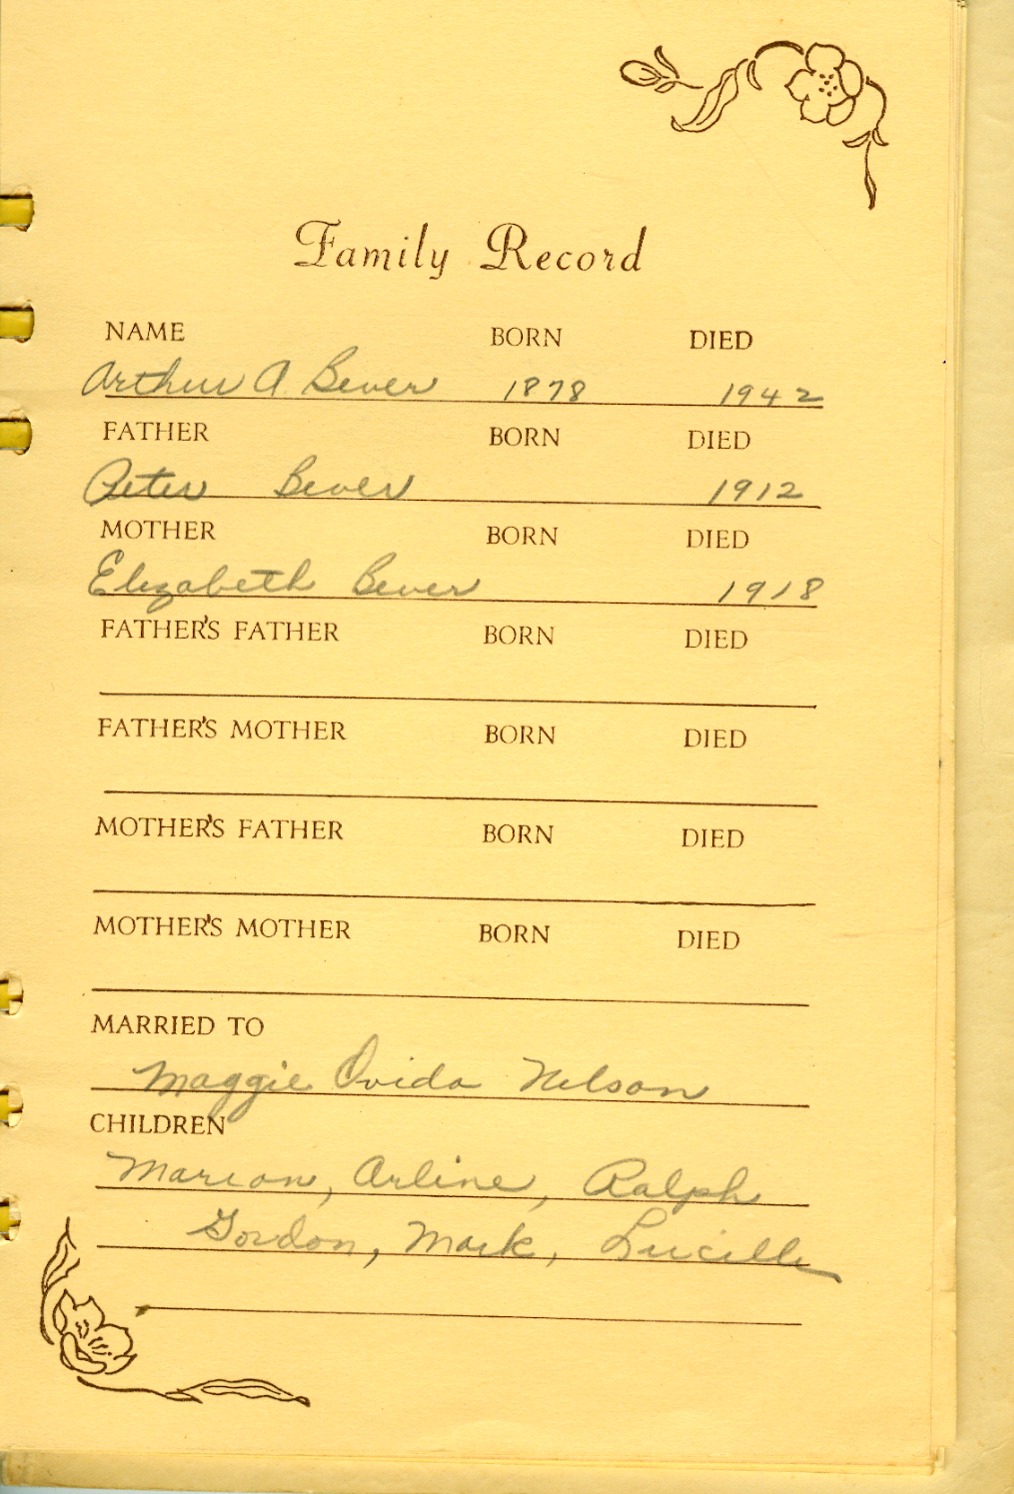 Family Record
NAME BORN DIED
Arthur A. Bever 1878 1942
FATHER BORN DIED
Peter Bever 1912
MOTHER BORN DIED
Elizabeth Bever 1918
FATHER'S FATHER BORN DIED
FATHER'S MOTHER BORN DIED
MOTHER'S FATHER BORN DIED
MOTHER'S MOTHER BORN DIED
MARRIED TO
Maggie Ovida Nelson
CHILDREN
Marion, Arline, Ralph
Gordon, Mark, Lucille